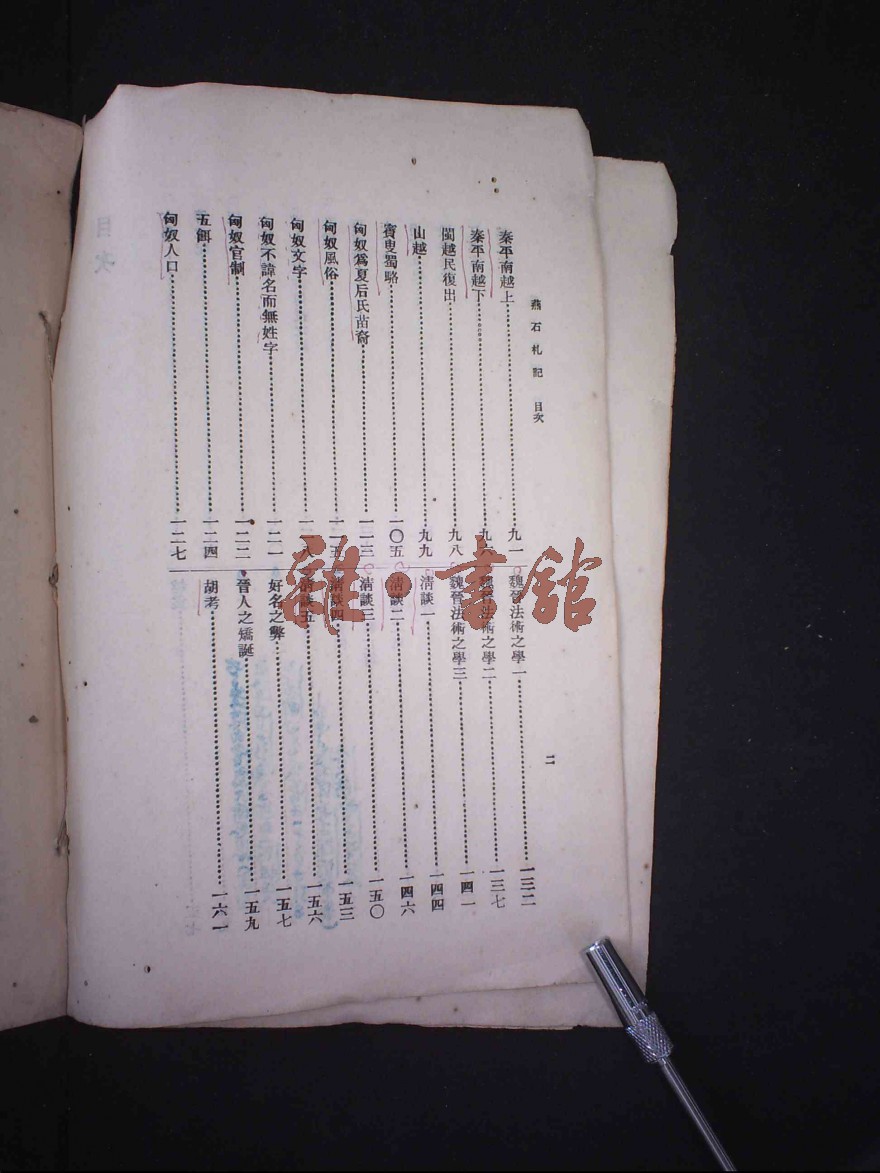 燕石札記 目次
二
秦平南越上 九一
秦平南越下 九六
閩越民復出 九八
山越 九九
賨叟蜀 一〇五
匈奴爲夏后氏苗裔 一一三
匈奴風俗 一一五
匈奴文字 一一八
匈奴不諱名而無姓字 一二一
匈奴官制 一二二
五餌 一二四
匈奴人口 一二七
魏晉法術之學一 一三二
魏晉法術之學二 一三七
魏晉法術之學三 一四一
清談一 一四四
清談二 一四六
清談三 一五〇
清談四 一五三
清談五 一五六
好名之弊 一五七
晉人之矯誕 一五九
胡考 一六一
目次
雜·書館